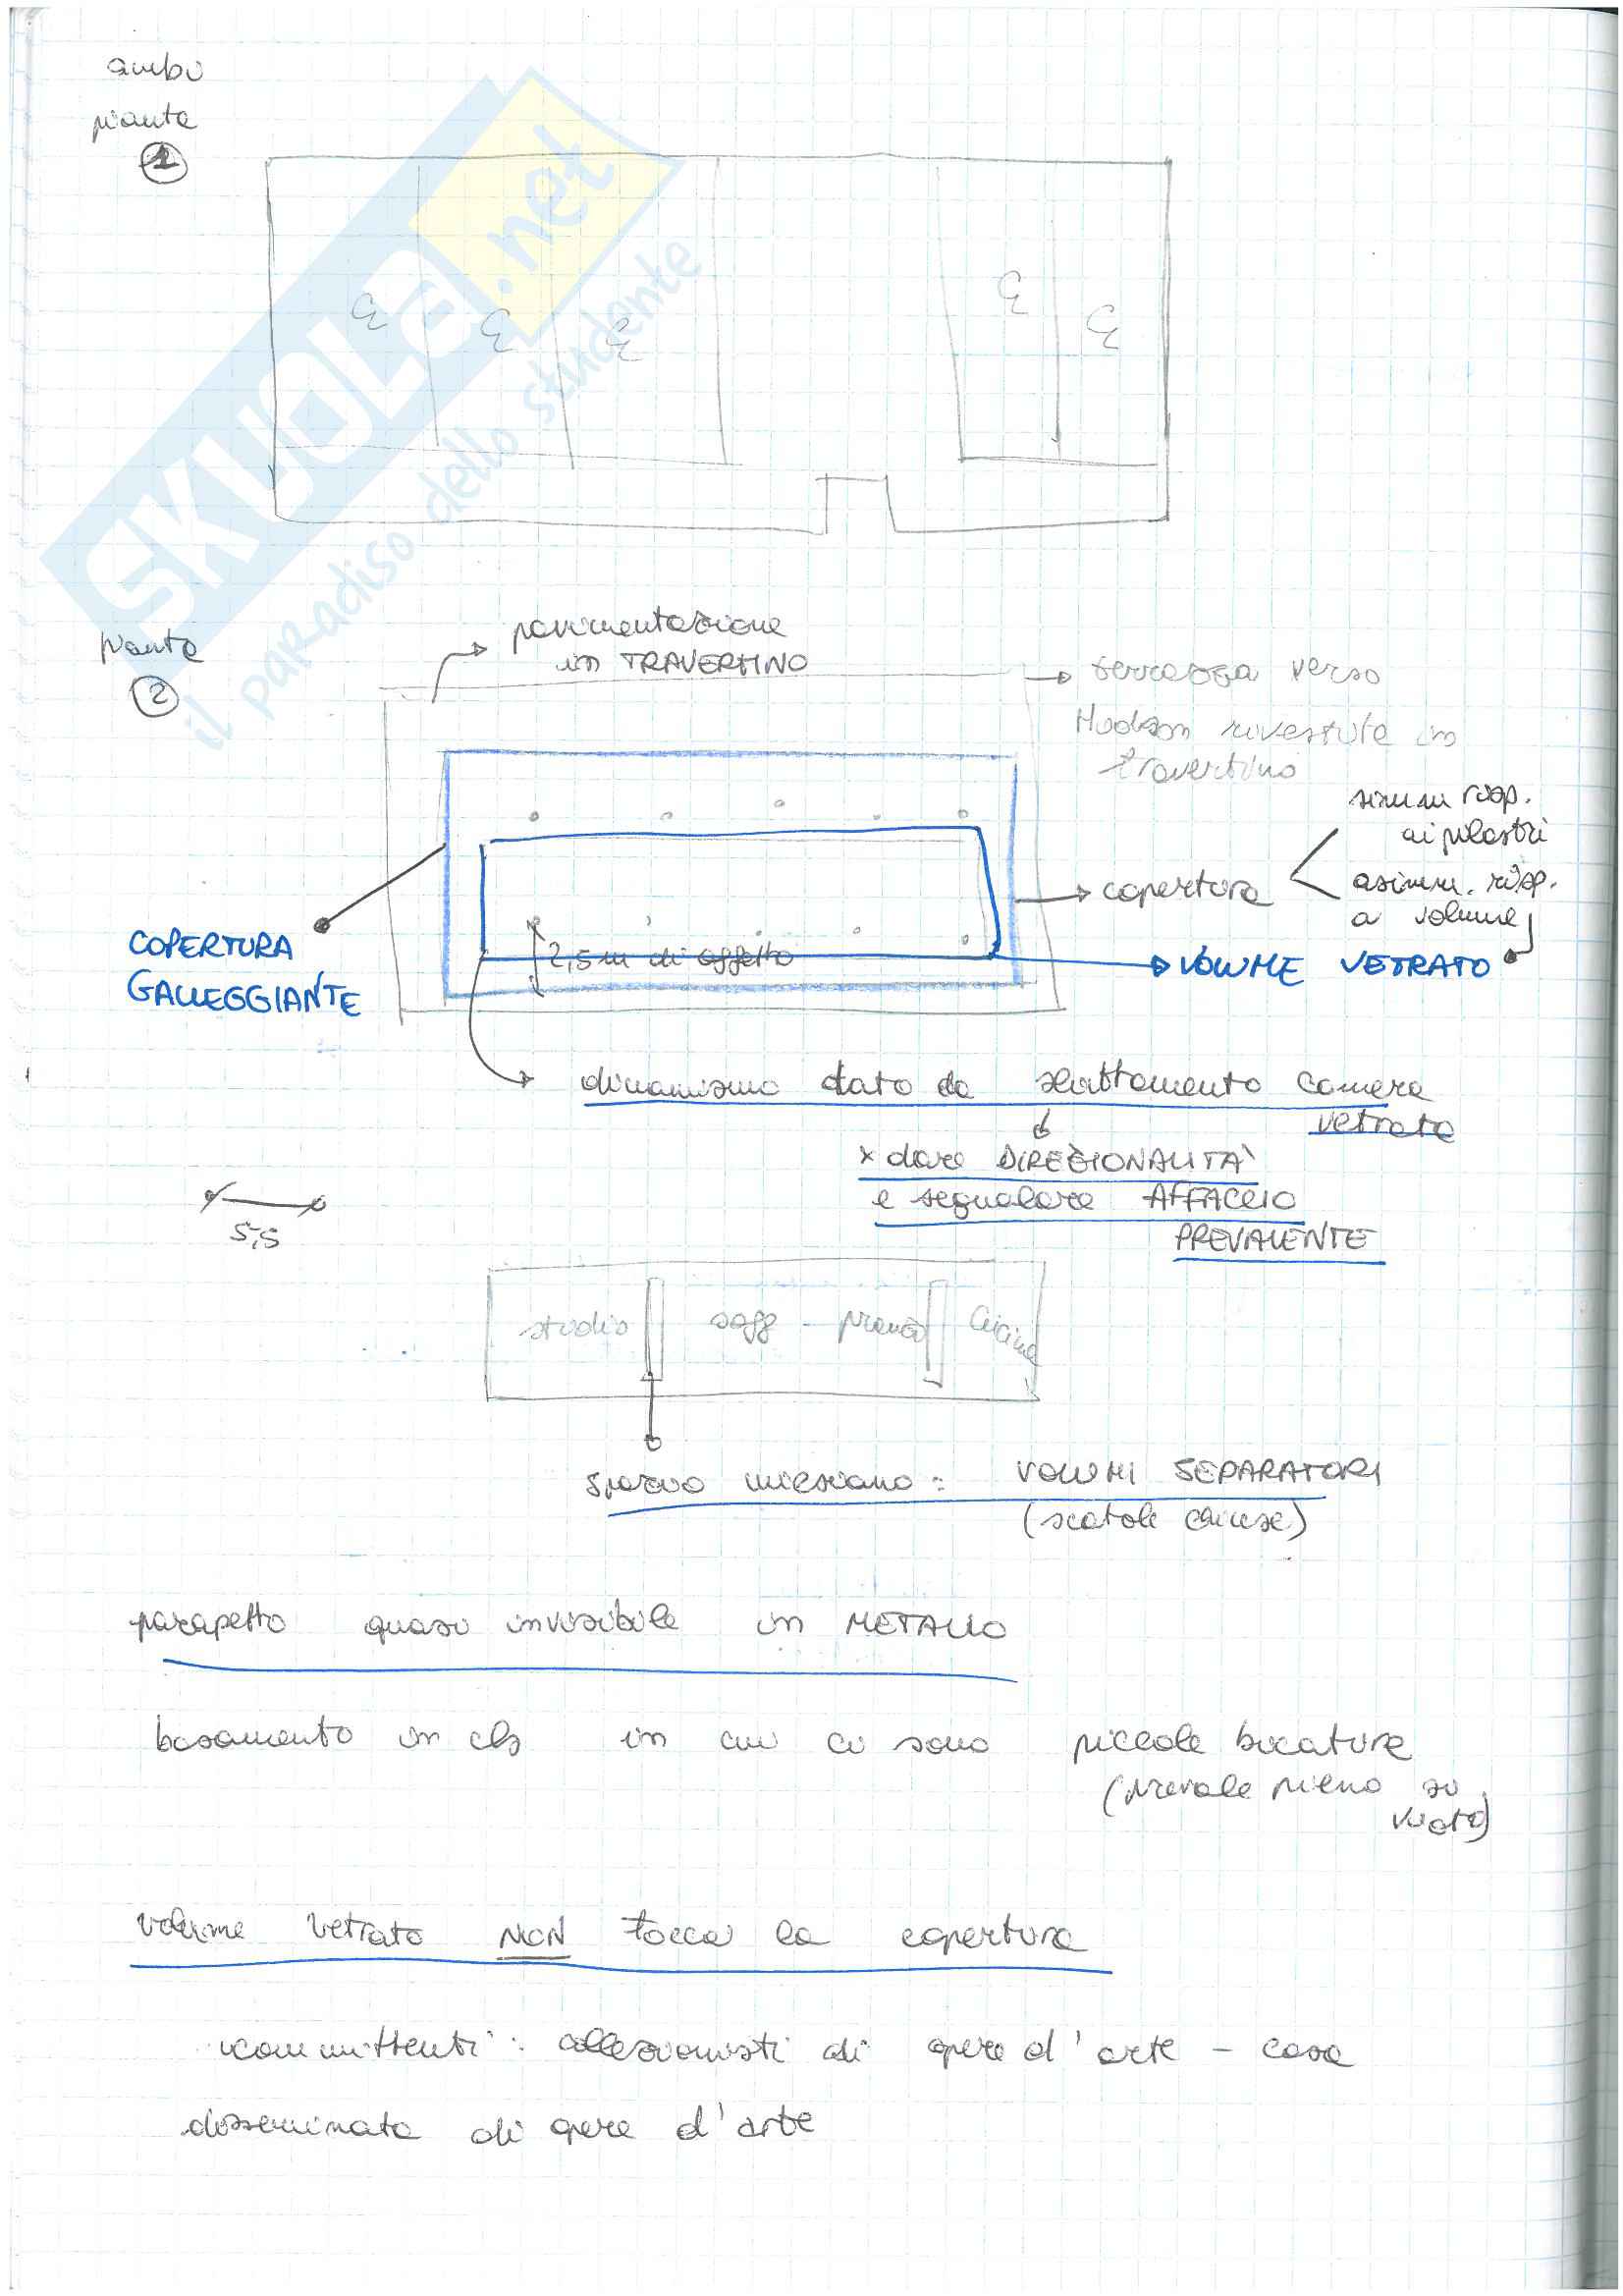 pianta
1
SKUOLA.net
il paradiso dello studente
E
E
E
E
E
pianta
2
pavimentazione
in TRAVERTINO
terrazza verso
Hudson rivestita in
travertino
simm risp.
ai pilastri
copertura
asimm. risp.
a volume
COPERTURA
GALLEGGIANTE
2,5 m di aggetto
VOLUME VETRATO
dinamismo dato da slittamento camera
vetrata
x dare DIREZIONALITÀ
e segnalare AFFACCIO
PREVALENTE
5,5
studio
sogg - pranzo
cucina
spazio miesiano: VOLUMI SEPARATORI
(scatole chiuse)
parapetto quasi invisibile in METALLO
basamento in cls in cui ci sono piccole bucature
(prevale pieno su
vuoto)
volume vetrato NON tocca la copertura
committenti: collezionisti di opere d'arte - casa
disseminata di opere d'arte